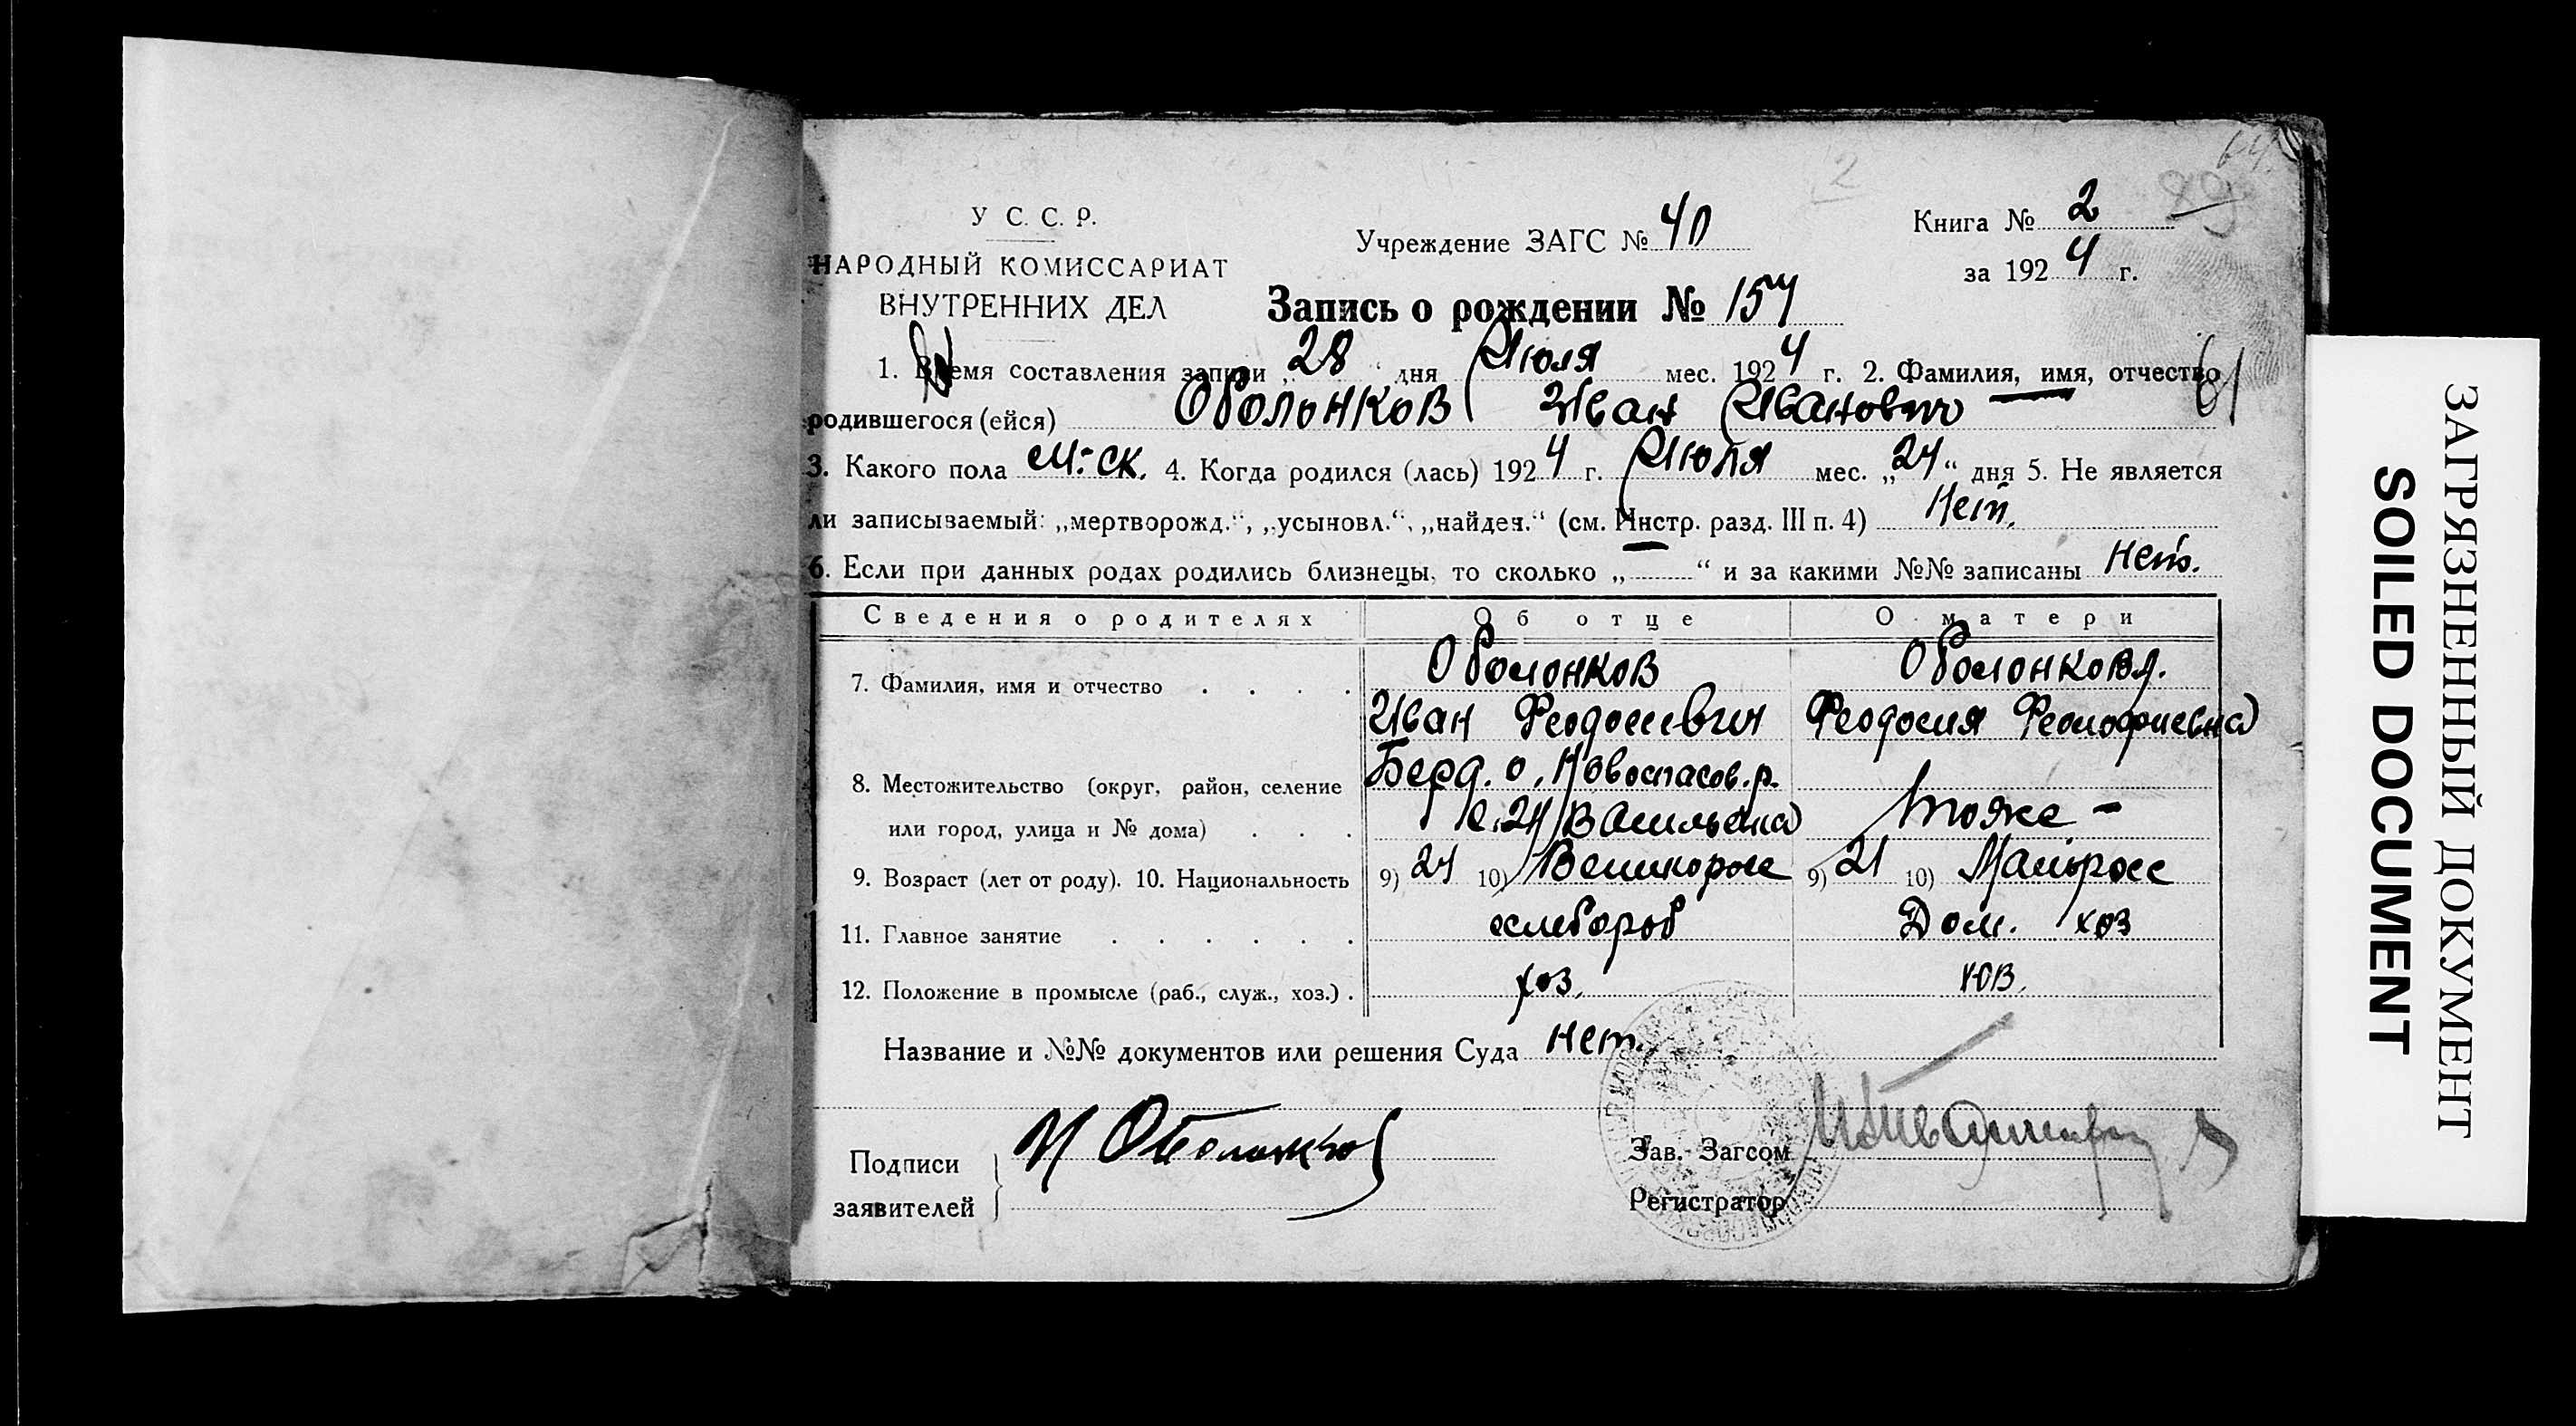 У С. С. Р.
НАРОДНЫЙ КОМИССАРИАТ
ВНУТРЕННИХ ДЕЛ
Учреждение ЗАГС № 40
Книга № 2
за 1924 г.
Запись о рождении № 157
1. Время составления записи „28“ дня Июля мес. 1924 г. 2. Фамилия, имя, отчество
родившегося (ейся) Оболонков Иван Иванович
3. Какого пола м-ск. 4. Когда родился (лась) 1924 г. Июля мес. „24“ дня 5. Не является
ли записываемый: „мертворожд.“, „усыновл.“, „найден.“ (см. Инстр. разд. III п. 4) Нет.
6. Если при данных родах родились близнецы, то сколько „—“ и за какими №№ записаны нет.
Сведения о родителях Об отце О матери
7. Фамилия, имя и отчество Оболонков Оболонкова.
Иван Феодосевич Феодосия
8. Местожительство (округ, район, селение Берд. о. Новоспасов. р.
или город, улица и № дома) тоже -
9. Возраст (лет от роду). 10. Национальность 9) 24 10) Великоросс 9) 21 10) Малоросс
11. Главное занятие хлебороб Дом. хоз
12. Положение в промысле (раб., служ., хоз.) хоз. хоз.
Название и №№ документов или решения Суда нет.
Подписи И Оболонков
заявителей
Зав. Загсом
Регистратор
ЗАГРЯЗНЕННЫЙ ДОКУМЕНТ
SOILED DOCUMENT